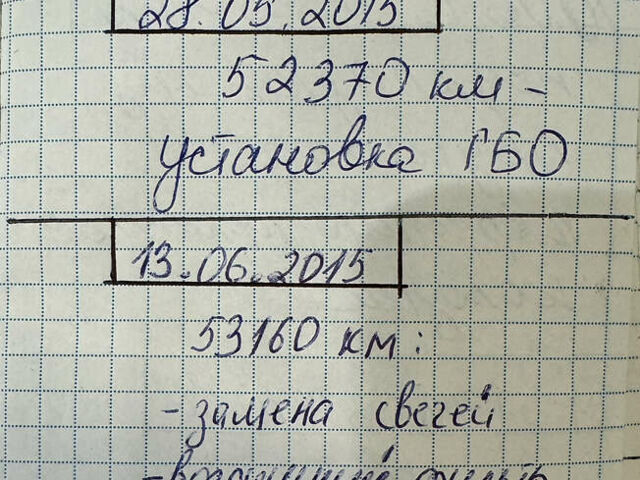 28.05.2015
52370 км -
установка ГБО
13.06.2015
53160 км:
- замена свечей